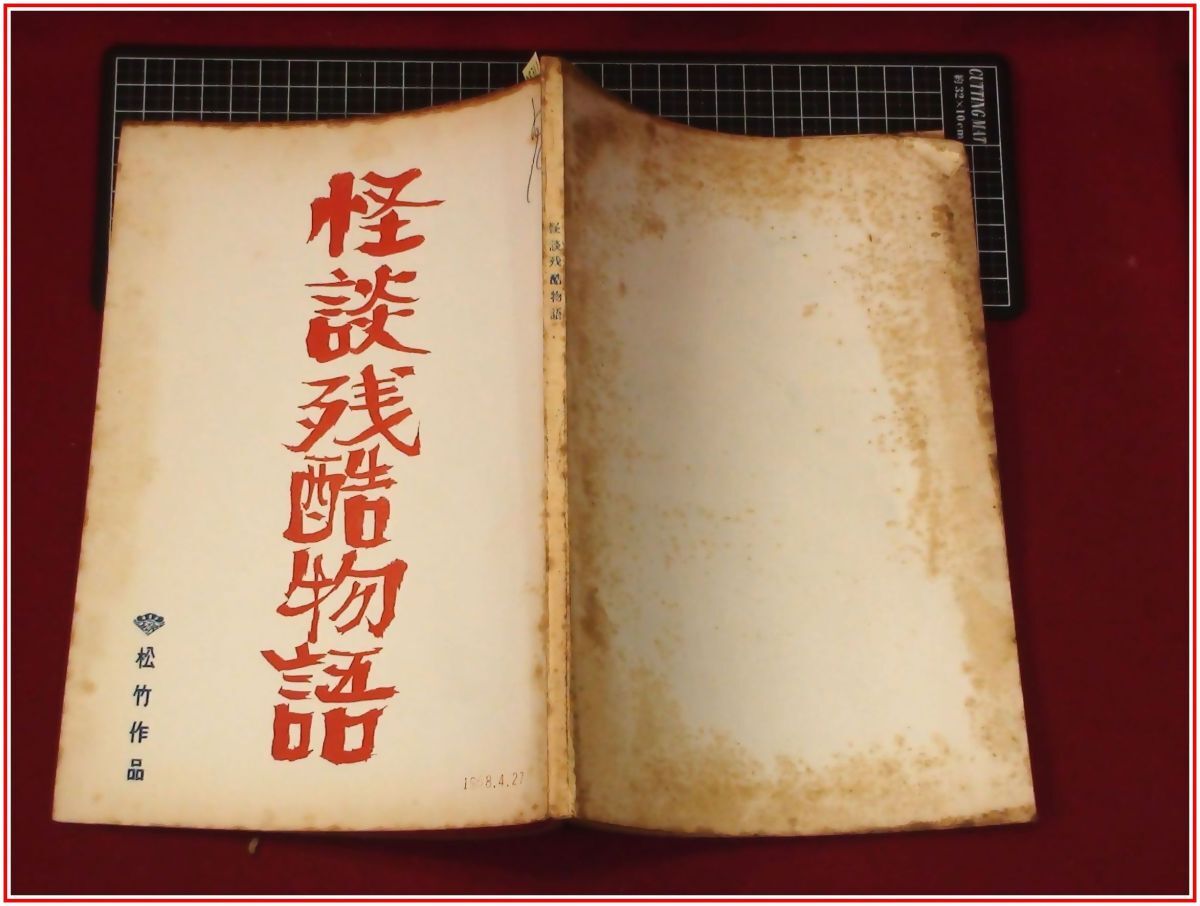 怪談残酷物語
松竹作品
1968.4.27
怪談残酷物語
CUTTING MAT
約32×10cm